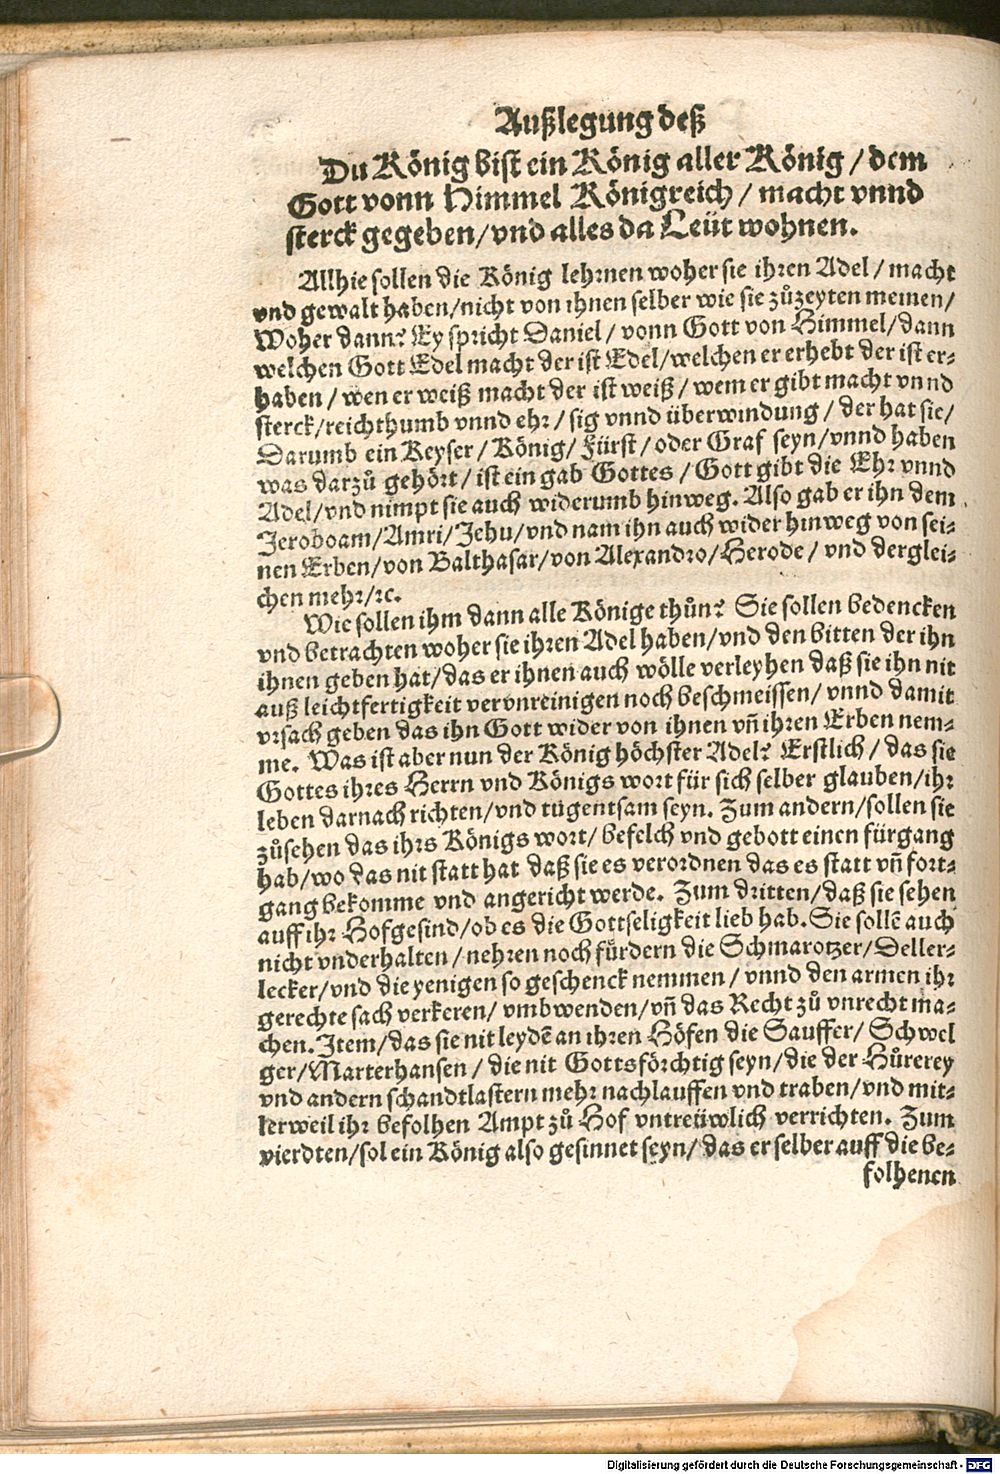 Außlegung deß
Du König bist ein König aller König / dem
Gott vonn Himmel Königreich / macht vnnd
sterck gegeben/vnd alles da Leüt wohnen.
Allhie sollen die König lehrnen woher sie ihren Adel / macht
vnd gewalt haben/nicht von ihnen selber wie sie zůzeyten meinen/
Woher dann? Ey spricht Daniel / vonn Gott von Himmel/dann
welchen Gott Edel macht der ist Edel/welchen er erhebt der ist er⸗
haben / wen er weiß macht der ist weiß / wem er gibt macht vnnd
sterck/reichthumb vnnd ehr / sig vnnd überwindung / der hat sie/
Darumb ein Keyser / König/ Fürst / oder Graf seyn/vnnd haben
was darzů gehört / ist ein gab Gottes / Gott gibt die Ehr vnnd
Adel/vnd nimpt sie auch widerumb hinweg. Also gab er ihn dem
Jeroboam/Amri/Jehu/vnd nam ihn auch wider hinweg von sei⸗
nen Erben/von Balthasar/von Alexandro/Herode / vnd derglei⸗
chen mehr/ꝛc.
Wie sollen ihm dann alle Könige thůn? Sie sollen bedencken
vnd betrachten woher sie ihren Adel haben/vnd den bitten der ihn
ihnen geben hat/das er ihnen auch wölle verleyhen daß sie ihn nit
auß leichtfertigkeit vervnreinigen noch beschmeissen/ vnnd damit
vrsach geben das ihn Gott wider von ihnen vñ ihren Erben nem⸗
me. Was ist aber nun der König höchster Adel? Erstlich / das sie
Gottes ihres Herrn vnd Königs wort für sich selber glauben/ihr
leben darnach richten/vnd tugentsam seyn. Zum andern/sollen sie
zůsehen das ihrs Königs wort/ befelch vnd gebott einen fürgang
hab/wo das nit statt hat daß sie es verordnen das es statt vñ fort⸗
gang bekomme vnd angericht werde. Zum dritten/daß sie sehen
auff ihr Hofgesind/ob es die Gottseligkeit lieb hab.Sie sollē auch
nicht vnderhalten / nehren noch fürdern die Schmarotzer/Deller⸗
lecker/vnd die yenigen so geschenck nemmen / vnnd den armen ihr
gerechte sach verkeren/ vmbwenden/vñ das Recht zů vnrecht ma⸗
chen.Item/das sie nit leydē an ihren Höfen die Sauffer/ Schwel
ger/Marterhansen / die nit Gottsförchtig seyn/die der Hůrerey
vnd andern schandtlastern mehr nachlauffen vnd traben/vnd mit⸗
lerweil ihr befolhen Ampt zů Hof vntreüwlich verrichten. Zum
vierdten/sol ein König also gesinnet seyn/das er selber auff die be⸗
folhenen
Digitalisierung gefördert durch die Deutsche Forschungsgemeinschaft - DFG